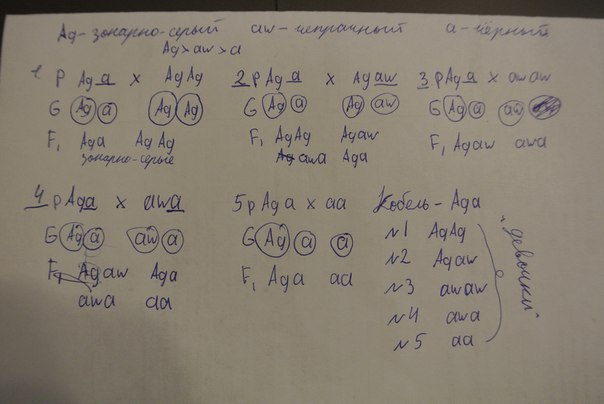 Ag - зонарно-серый aw - чепрачный a - чёрный
Ag > aw > a
1 P Ag a x Ag Ag
G Ag a Ag Ag
F1 Ag a Ag Ag
зонарно-серые
2 P Ag a x Ag aw
G Ag a Ag aw
F1 Ag Ag Ag aw
aw a Ag a
3 P Ag a x aw aw
G Ag a aw
F1 Ag aw aw a
4 P Ag a x aw a
G Ag a aw a
F1 Ag aw Ag a
aw a aa
5 P Ag a x aa
G Ag a a
F1 Ag a aa
Кобель - Ag a
№1 Ag Ag
№2 Ag aw
№3 aw aw
№4 aw a
№5 aa
"девочки"